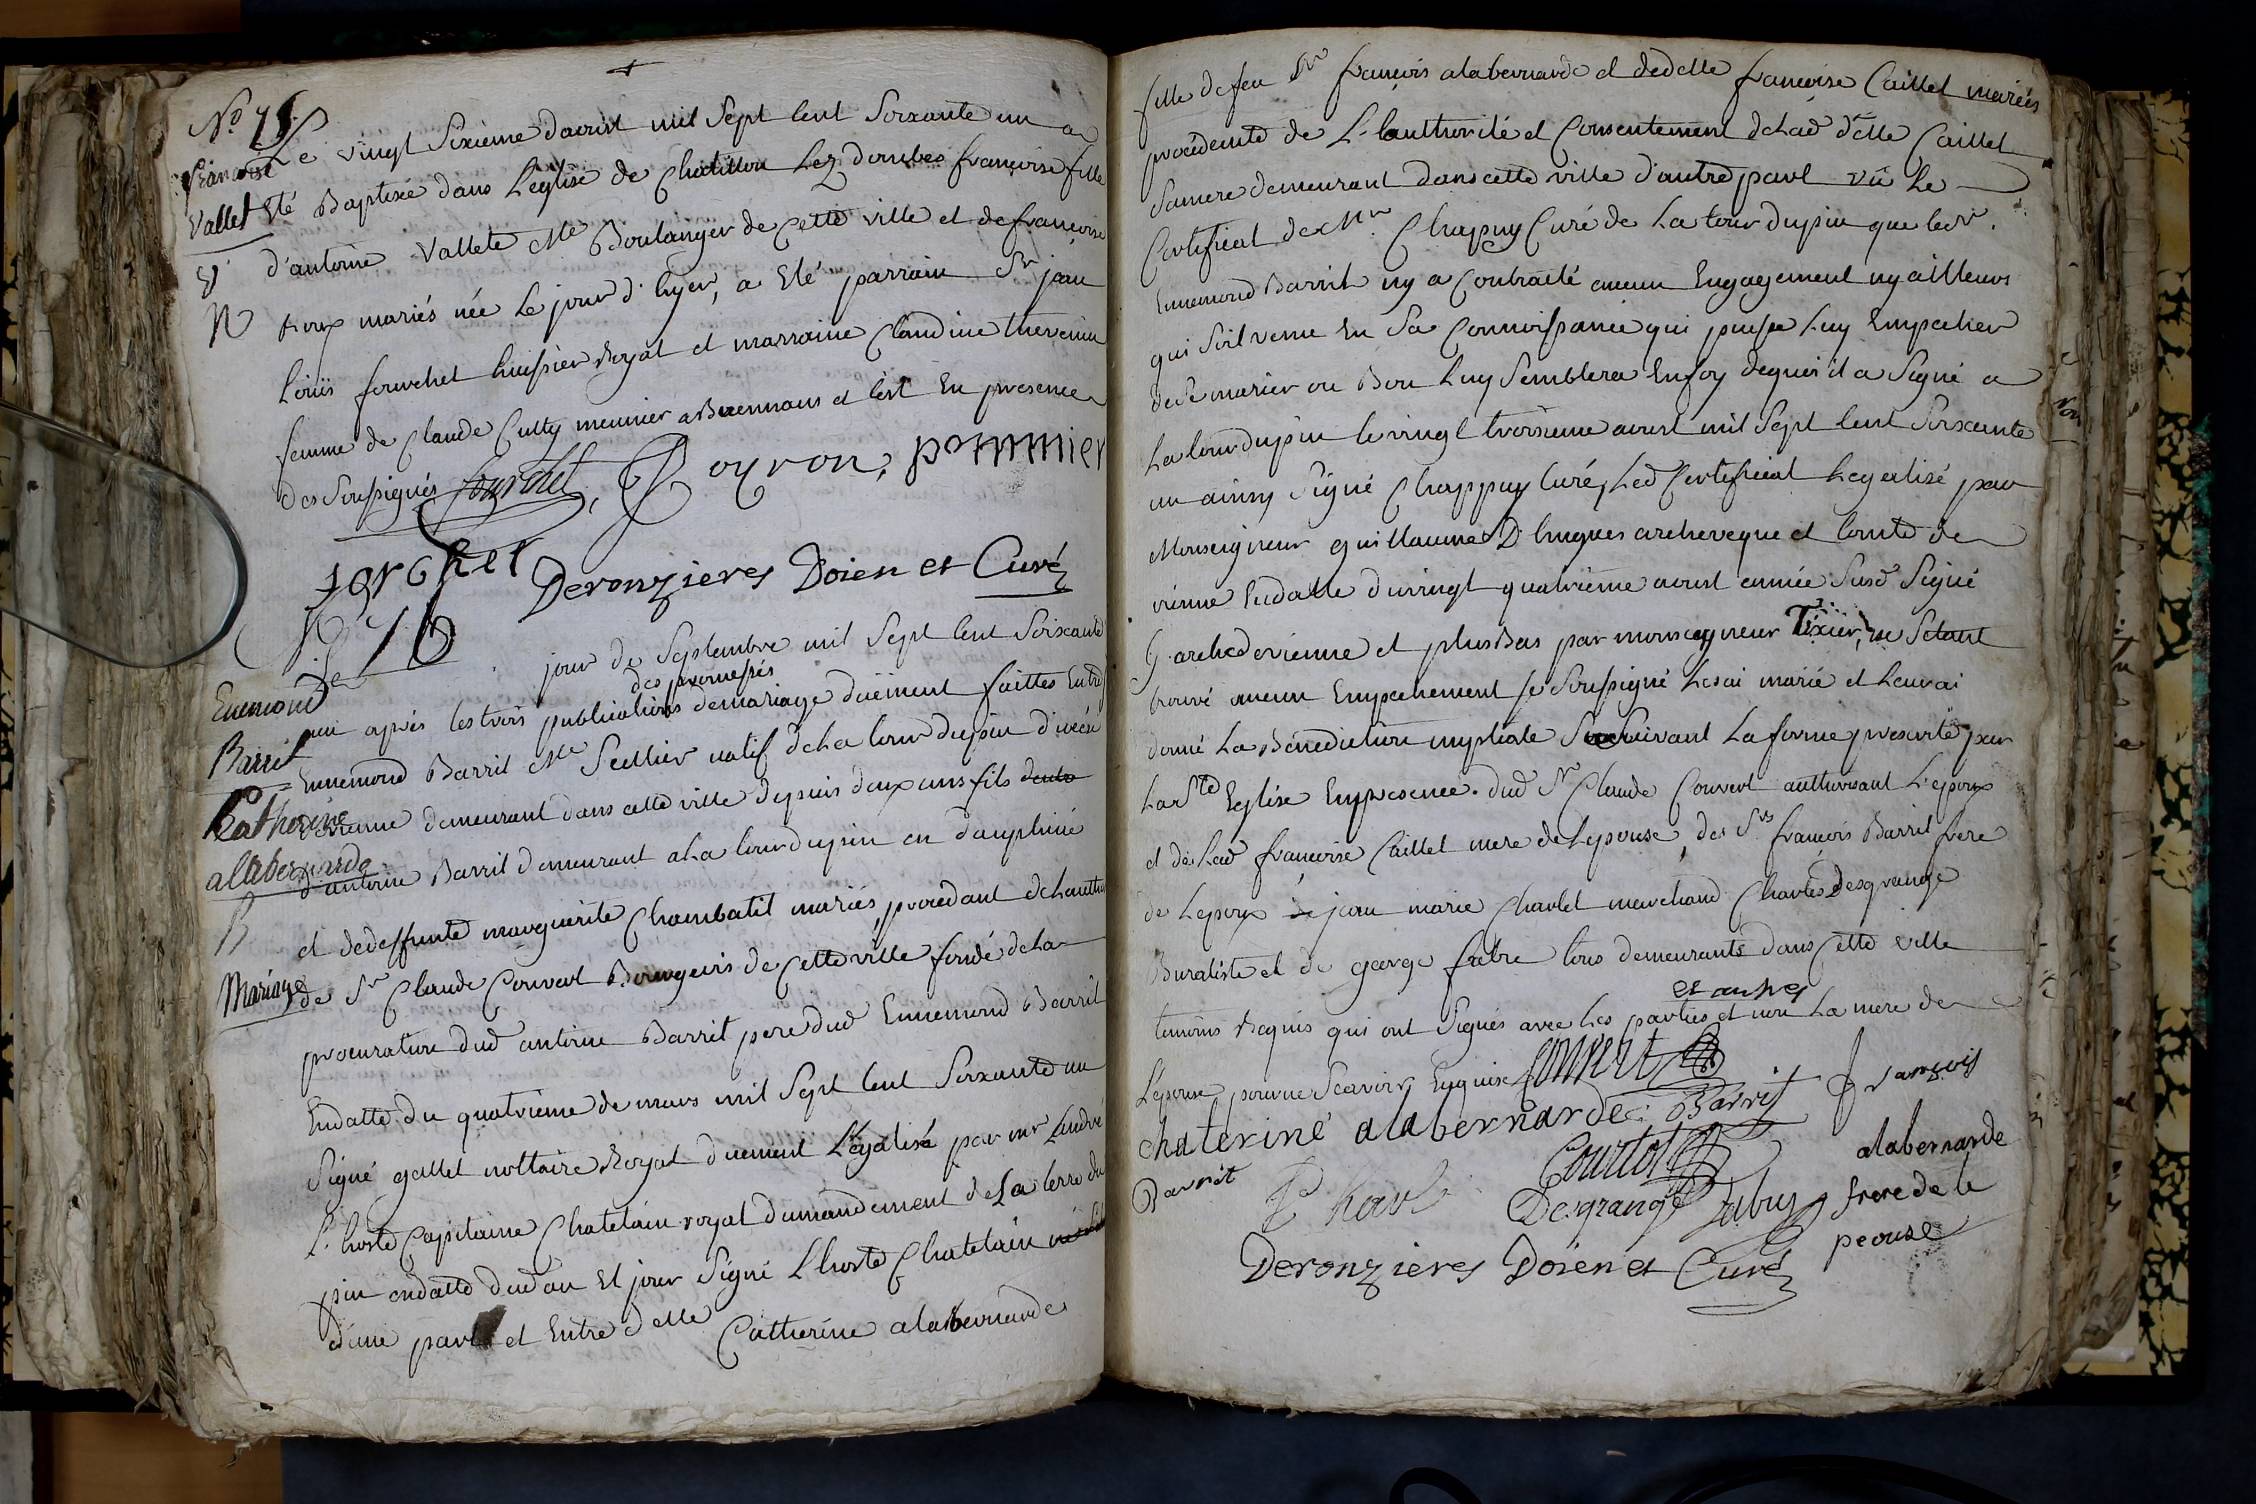 N° 75
Le vingt Sixieme d'aoust mil Sept Cent Soixante un a
Francoise
Vallet Eté Baptisée dans L'eglise de Chatillon Lez dombes françoise fille
d'antoine Vallete Me Boulanger de Cette ville et de françoise
Roux mariés née Le jour d'hyer, a Eté parrain Sr jean
Loüis fourchet huissier Royal et marraine Claudine thevenin
femme de Claude Cutty meunier a Buennans et C'est En presence
des Soussignés fourchet, Poyron, pommier
forchet Deronzieres Doien et Curé
N° 76
Le 1er jour de Septembre mil Sept Cent Soixante
des promesses
un après les trois publications de mariage düement faittes Entre
Enemond
Barrit
Ennemond Barrit Me Sellier natif de La tour dupin diocése
Catherine
de vienne demeurant dans cette ville depuis deux ans fils
alabernarde
d'antoine Barrit demeurant a La tour dupin en dauphiné
et de deffunte marguerite Chambatit mariés, procedant de Lautho
Mariage
de Sr Claude Couvert Bourgeois de Cette ville fondé de La
procuration dud antoine Barrit pere dud Ennemond Barrit
En datte du quatrieme de mars mil Sept Cent Soixante un
Signé gallet nottaire Royal duement Légalisé par mr L'andré
L'hoste Capitaine Chatelain royal du mandement de La terre du
pin en datte dud an Et jour Signé Lhoste Chatelain
d'une part et Entre delle Catherine alabernarde
fille de feu Sr françois alabernarde et de delle françoise Caillet mariés
procedente de L'authorité et Consentement de Lad delle Caillet
Sa mere demeurant dans cette ville d'autre part vû Le
Certificat de Mr Chapuy Curé de La tour dupin que led Sr
Ennemond Barrit ny a Contracté aucun Engagement ny ailleurs
qui Soit venu En Sa Connoissance qui puisse Luy Empecher
de Se marier ou Bon Luy Semblera En foy dequoi il a Signé a
La tour dupin le vingt troisieme aoust mil Sept Cent Soixante
un ainsy Signé Chappuy Curé, Led Certificat Legalisé par
Monseigneur guillaume D'hugues archeveque et Comte de
vienne En datte du vingt quatrieme aoust année Susd Signé
G. arche de vienne et plus Bas par monseigneur Tixier, ne S'etant
trouvé aucun Empechement je Soussigné Les ai marié et Leur ai
donné La Bénédiction nuptiale Suivant La forme prescrite par
La Ste Eglise En presence dud Sr Claude Couvert authorisant L'epoux
et de Lad françoise Caillet mere de Lepouse, des Srs françois Barrit frere
de Lepoux jean marie Charlet marchand Charles Desgrange
Buraliste et de george fabre tous demeurants dans Cette ville
et autres
temoins Requis qui ont Signés avec Les parties et non La mere de
L'epouse pour ne Scavoir, Enquise Couvert
chaterine alabernarde Barrit François
Barrit Charlet Courtot alabernarde
Desgrange fabre frere de le
pouse
Deronzieres Doïen et Curé